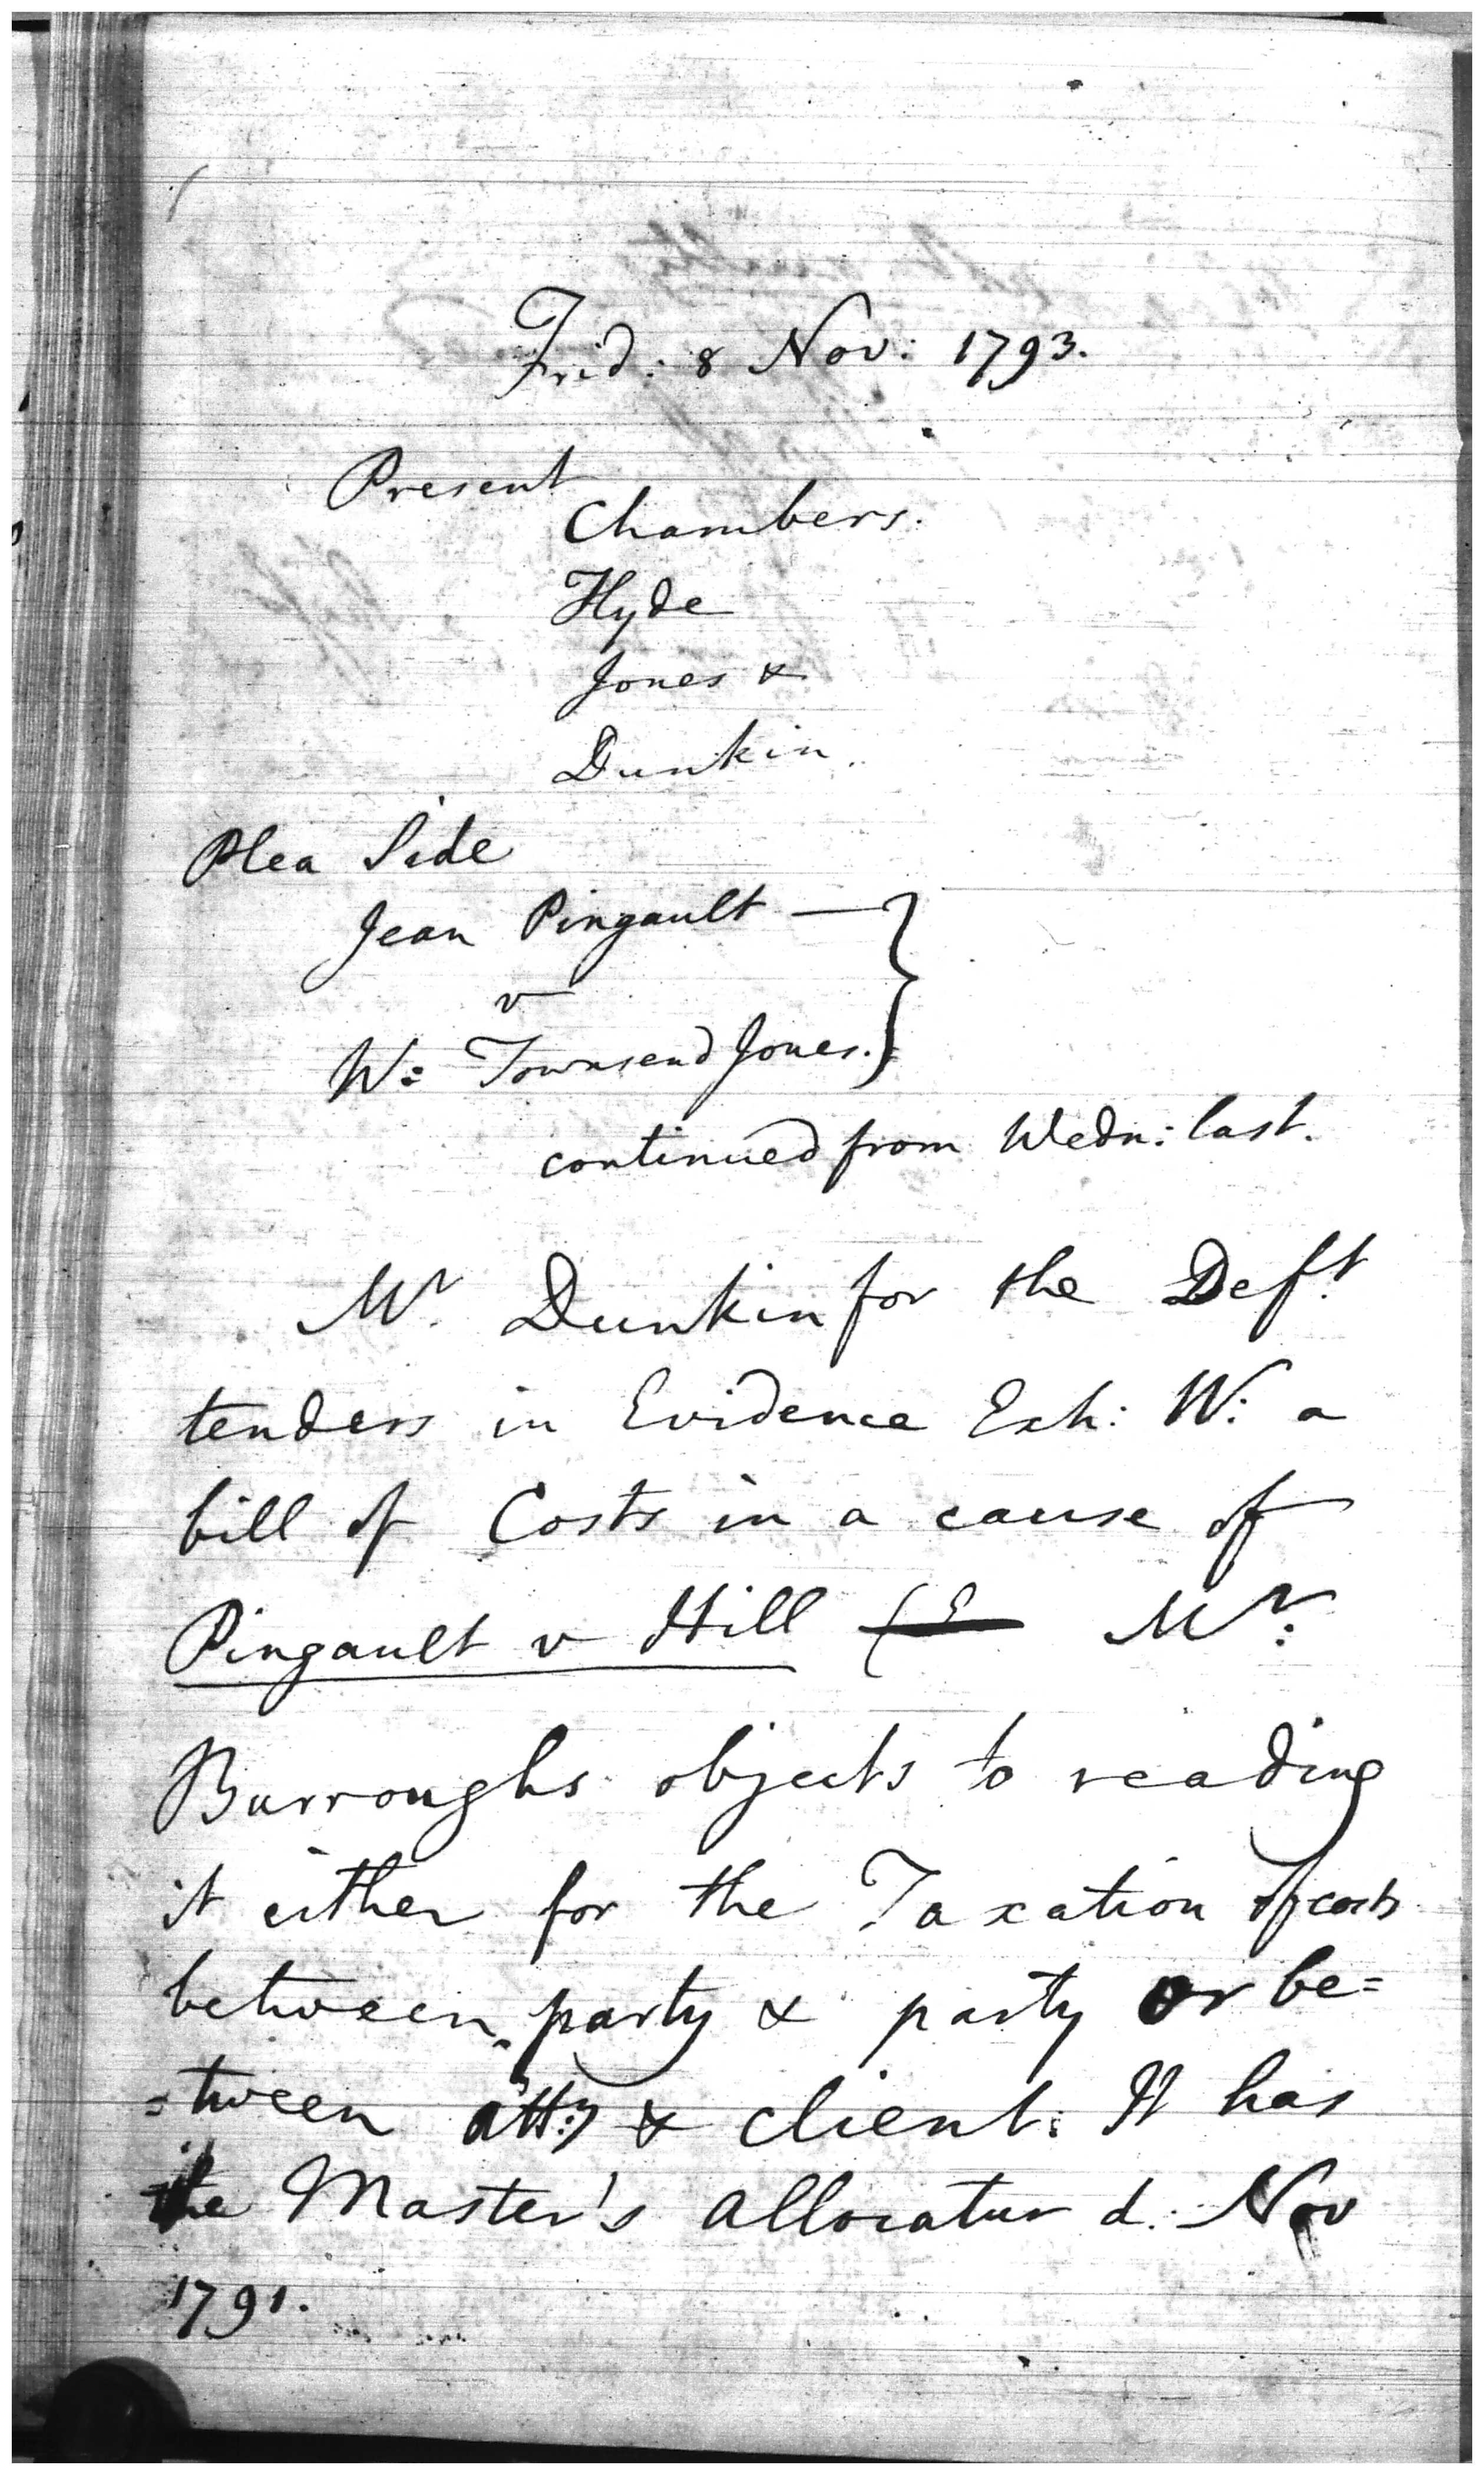 Frid: 8 Nov: 1793.
Present
Chambers.
Hyde
Jones &
Dunkin.
Plea Side
Jean Pingault —
v
W: Townsend Jones.
continued from Wedn: last.
Mr. Dunkin for the Deft.
tenders in Evidence Exh: W: a
bill of Costs in a cause of
Pingault v Hill ( Mr:
Burroughs objects to reading
it either for the Taxation of costs
between party & party or be=
=tween att:y & client. It has
the Master's allocatur d. Nov
1791.